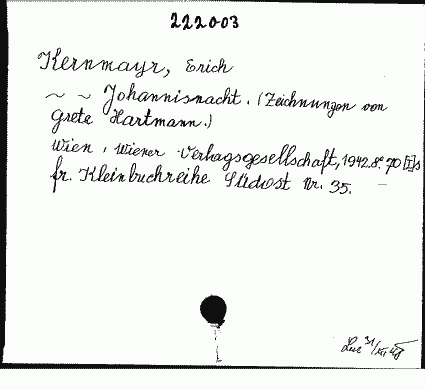 222003
Kernmayr, Erich
~ ~ Johannisnacht. (Zeichnungen von
Grete Hartmann.)
Wien: Wiener Verlagsgesellschaft, 1942. 8° 70 [1] S
fr. Kleinbuchreihe Südost Nr. 35. –
31/XII